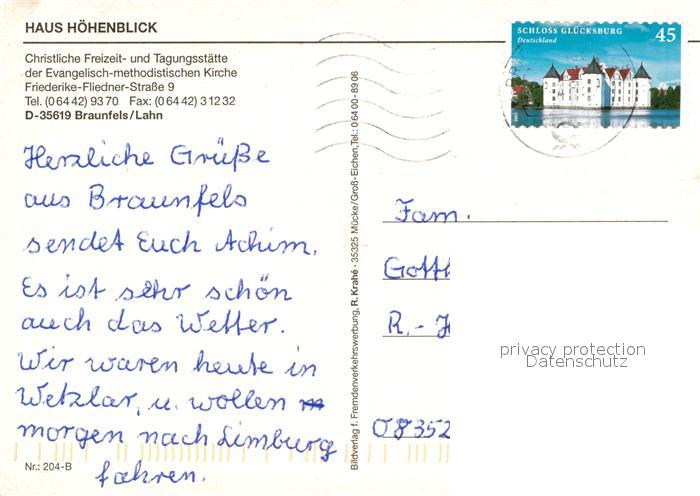 HAUS HÖHENBLICK
Christliche Freizeit- und Tagungsstätte
der Evangelisch-methodistischen Kirche
Friederike-Fliedner-Straße 9
Tel. (0 64 42) 93 70 Fax: (0 64 42) 3 12 32
D-35619 Braunfels/Lahn
Herzliche Grüße
aus Braunfels
sendet Euch Achim.
Es ist sehr schön
auch das Wetter.
Wir waren heute in
Wetzlar, u. wollen
morgen nach Limburg
fahren.
Nr.: 204-B
Bildverlag f. Fremdenverkehrswerbung, R. Krahé · 35325 Mücke/Groß-Eichen, Tel.: 0 64 00 - 89 06
SCHLOSS GLÜCKSBURG 45
Deutschland
Fam.
Gotth
R.-H
08352
privacy protection
Datenschutz